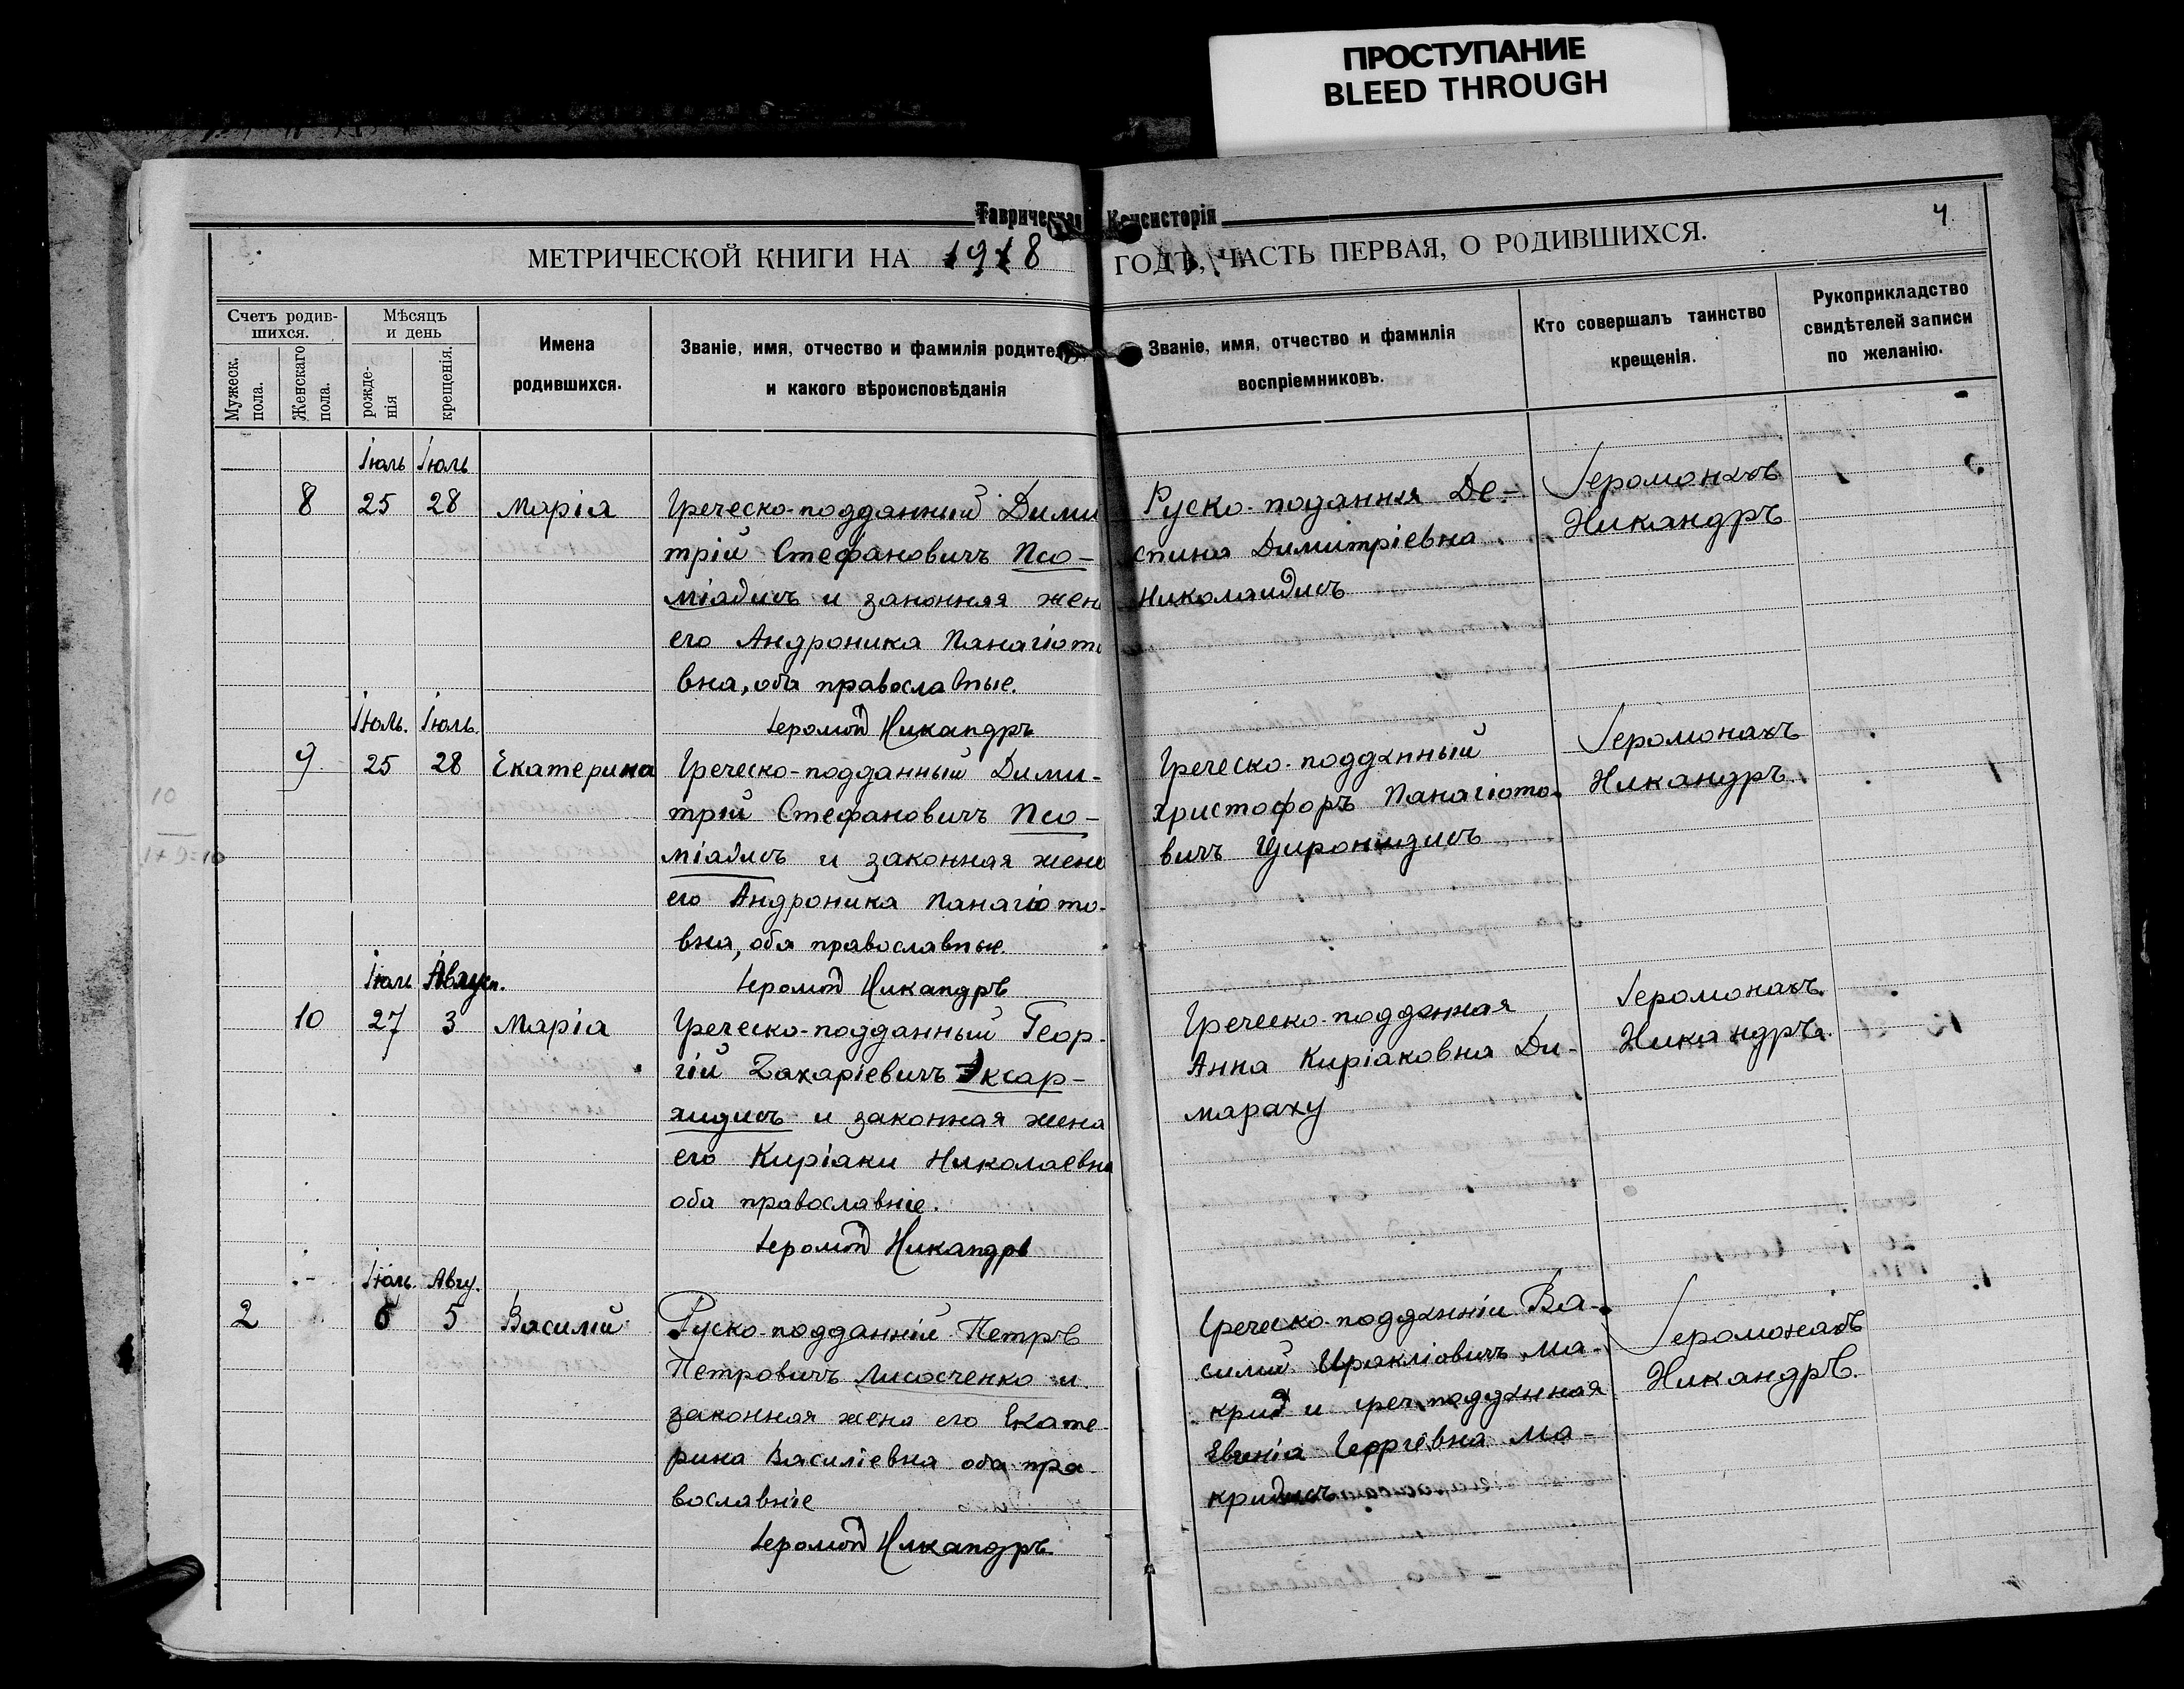 ПРОСТУПАНИЕ
BLEED THROUGH
Таврическая Консисторія
МЕТРИЧЕСКОЙ КНИГИ НА 1918 ГОДЪ, ЧАСТЬ ПЕРВАЯ, О РОДИВШИХСЯ.
4.
Счетъ родив-
шихся.
Мужеск.
пола.
Женскаго
пола.
Мѣсяцъ
и день
рожде-
нія
крещенія.
Имена
родившихся.
Званіе, имя, отчество и фамилія родител
и какого вѣроисповѣданія
Званіе, имя, отчество и фамилія
воспріемниковъ.
Кто совершалъ таинство
крещенія.
Рукоприкладство
свидѣтелей записи
по желанію.
Іюль Іюль
8 25 28 Марія
Греческо-подданний Дими
трій Стефановичъ Псо-
міадисъ и законная жен
его Андроника Панагіото
вна, оба православные.
Іеромон Никандръ
Руско-подання Де-
спина Димитріевна
Николаидисъ
Іеромонахъ
Никандръ
Іюль. Іюль.
9 25 28 Екатерина
Греческо-подданный Дими-
трій Стефановичъ Псо-
міадисъ и законная жена
его Андроника Панагіото-
вна, оба православные.
Іеромон Никандръ
Греческо-подданный
Христофоръ Панагіото-
вичъ
Іеромонахъ
Никандръ.
10
1+9=10
Іюль Август.
10 27 3 Марія
Греческо-подданный Геор-
гій Захаріевичъ Эксар-
хидисъ и законная жена
его Киріаки Николаевна
оба православніе.
Іеромон Никандръ
Греческо-подданная
Анна Киріаковна Ди-
мараху
Іеромонахъ
Никандръ.
Іюль. Авгу.
2 6 5 Василій
Руско-подданній Петръ
Петровичъ Лисосченко и
законная жена его Екате-
рина Василіевна оба пра-
вославніе
Іеромон Никандръ
Греческо-подданніи Ва-
силий Иракліовичъ Ма-
крид и греч. подданная
Евгенія Георгіевна Ма-
кридисъ
Іеромонахъ
Никандръ.